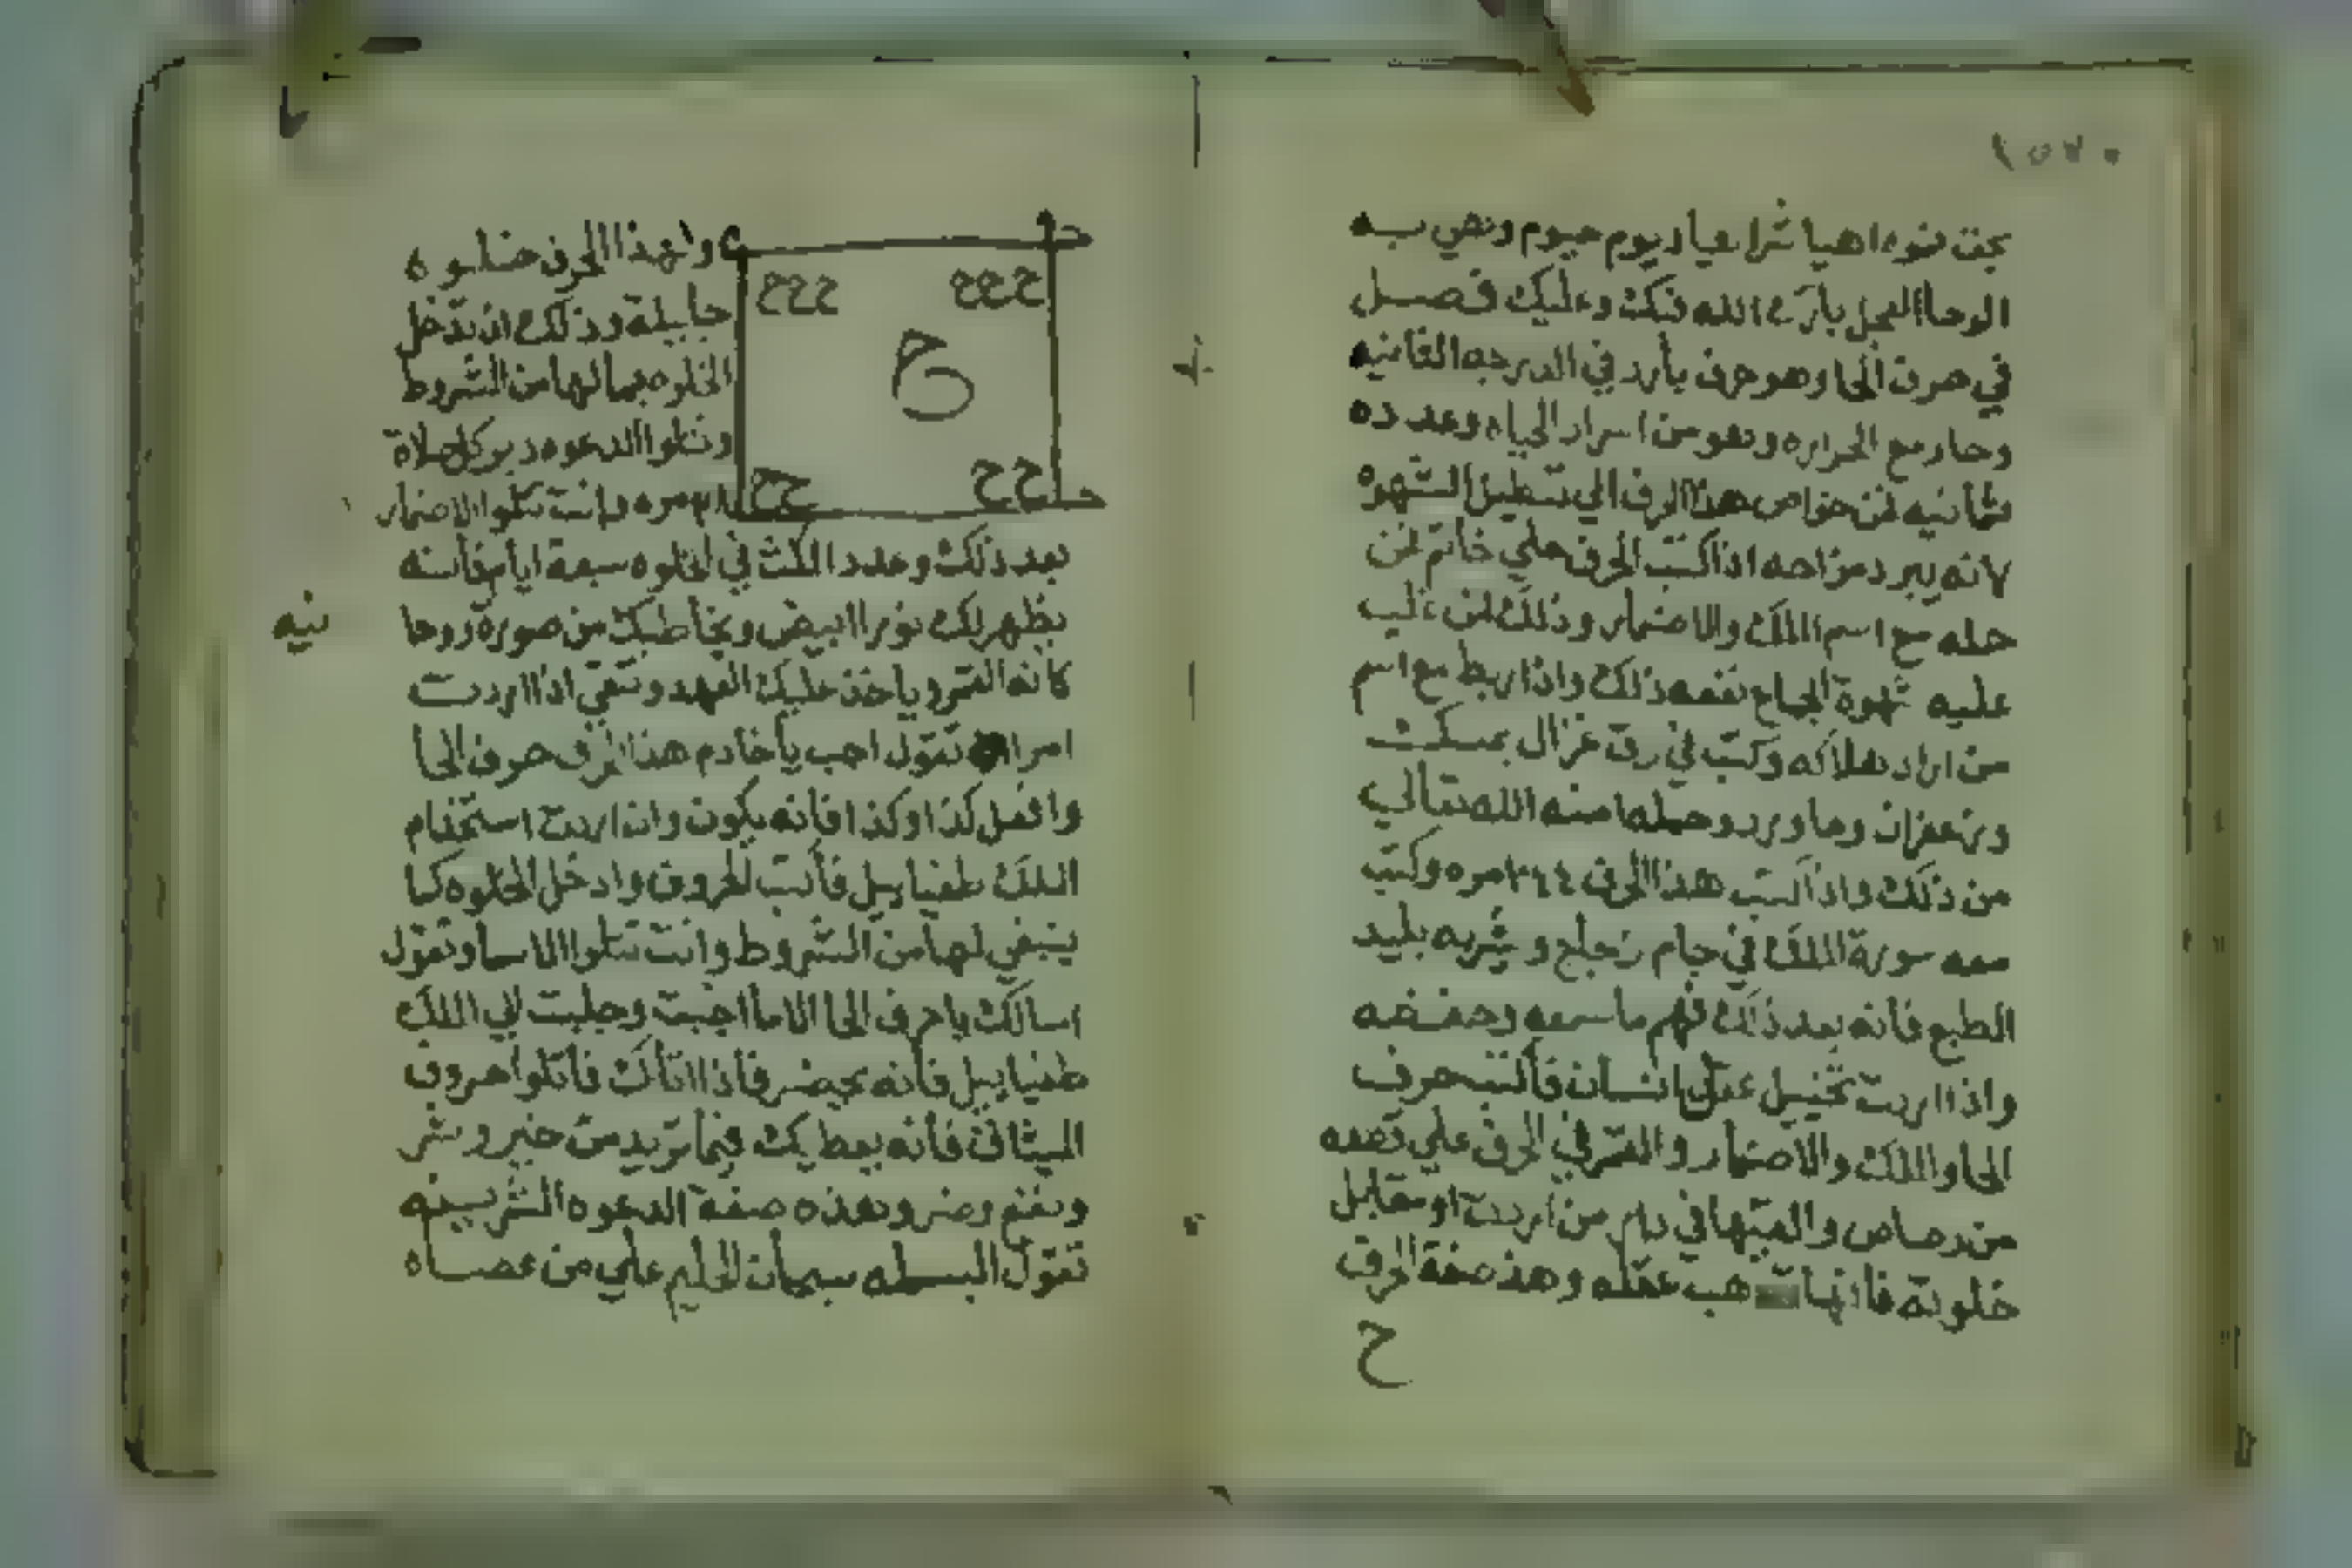 الوحا العجل بارك الله فيك وعليك فصل
في حرف الحا وهو حرف بارد في الدرجه الثامنيه
وحار مع الحراره وهو من اسرار الحياه وعدده
ثمانيه فمن خواص هذا الحرف الي تبطيل الشهوه
لانه يبرد مزاجه اذا كتب الحرف علي خاتم لمن
حله مع اسم الملك والاضمار وذلك لمن غلب
عليه شهوة الجماع نفعه ذلك واذا ربط مع اسم
من اراد هلاكه وكتب في رق غزال بمسك
وزعفران وماورد وحمله امنه الله تعالي
من ذلك واذا كتب هذا الحرف مره وكتب
معه سورة الملك في جام زجاج وشربه بليد
الطبع فانه بعد ذلك فهم ما سمعه وحفضه
واذا اردت تخبيل عقل انسان فاكتب حرف
الحا والملك والاضمار والقمر في الحرف علي قطعه
من رصاص والقيها في دار من اردت او مقابل
خلوته فانها هب عقله وهذه صفة الحرف
ح
ححح ححح
ح
حح حح
ولهذا الحرف خلوه
جليله وذلك ان تدخل
الخلوه بما لها من الشروط
وتتلوا الدعوه دبر كل صلاة
مره وانت تتلوا الاضمار
بعد ذلك وعدد المكث في الخلوه سبعة ايام فانه
يظهر لك نورا ابيض ويخاطبك من صورة روحا
نيه
كانه القمر وياخذ عليك العهد وتبقي اذا اردت
امرا تقول اجب يا خادم هذا الحرف حرف الحا
وافعل كذا وكذا فانه يكون وان اردت استخدام
الملك طفيا ييل فاكتب الحروف وادخل الخلوه كما
ينبغي لها من الشروط وانت تتلوا الاسما وتقول
اسالك يا حرف الحا الا ما اجبت وجلبت لي الملك
طفيا ييل فانه يحضر فاذا اتاك فاتلوا حروف
الميثاق فانه يعطيك فيما تريد من خير وشر
ونفع وضر وهذه صفة الدعوه الشريفه
تقول البسمله سبحان الحليم علي من عصاه